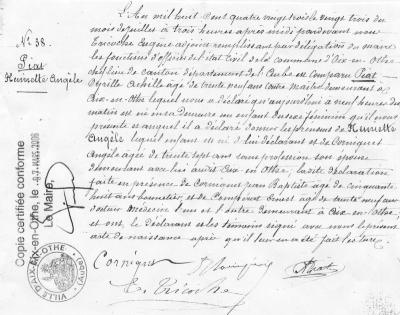 N° 38.
Piat
Henriette Angèle
L'An mil huit cent quatre vingt trois le vingt trois du
mois de juillet à trois heures après midi pardevant nous
Eugène adjoint remplissant par délégation du maire
les fonctions d'officier de l'état civil de la commune d'Aix-en-Othe
chef lieu de Canton département de l'Aube est comparu Piat
Achille âgé de trente neuf ans demeurant à
Aix-en-Othe lequel nous a déclaré qu'aujourd'hui à neuf heures du
matin est né en sa demeure un enfant du sexe féminin qu'il nous
présente et auquel il a déclaré donner les prénoms de Henriette
Angèle lequel enfant est né de lui déclarant et de Corniquet
Angèle âgée de trente sept ans sans profession son épouse
demeurant avec lui audit Aix en Othe, la dite déclaration
faite en présence de Jean Baptiste âgé de cinquante
huit ans bonnetier et de Ernest âgé de trente neuf ans
docteur médecin l'un et l'autre demeurant à Aix-en-Othe,
et ont, le déclarant et les témoins signé avec nous le présent
acte de naissance après qu'il leur en a été fait lecture.
Piat
Copie certifiée conforme
Aix-en-Othe, le
Le Maire,
VILLE D'AIX-EN-OTHE
(Aube)